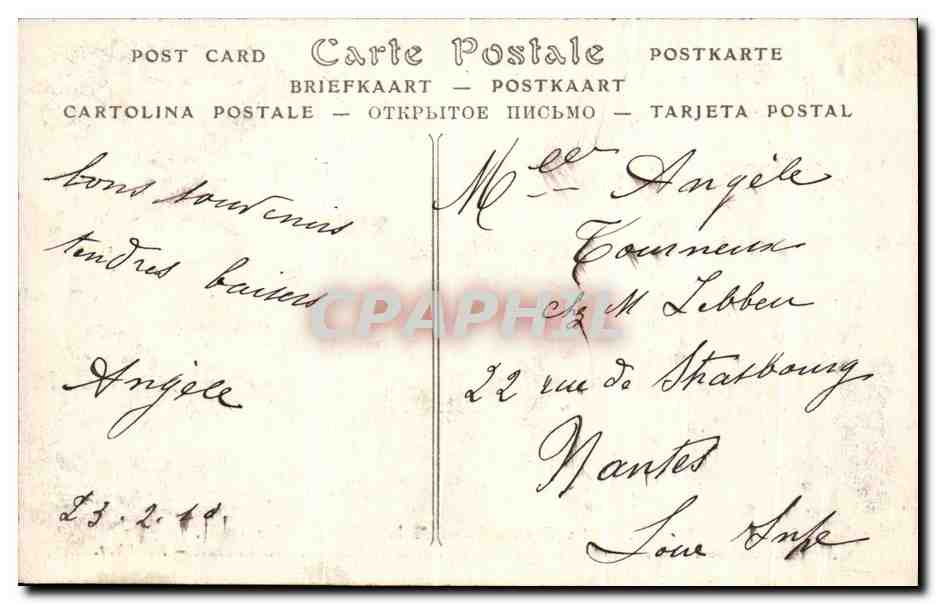 POST CARD Carte Postale POSTKARTE
BRIEFKAART — POSTKAART
CARTOLINA POSTALE — ОТКРЫТОЕ ПИСЬМО — TARJETA POSTAL
bons souvenirs
tendres baisers
Angèle
23.2.10.
Melle Angèle
Tourneux
chz M Lebbeu
22 rue de Strasbourg
Nantes
Loire Infre
CPAPHIL